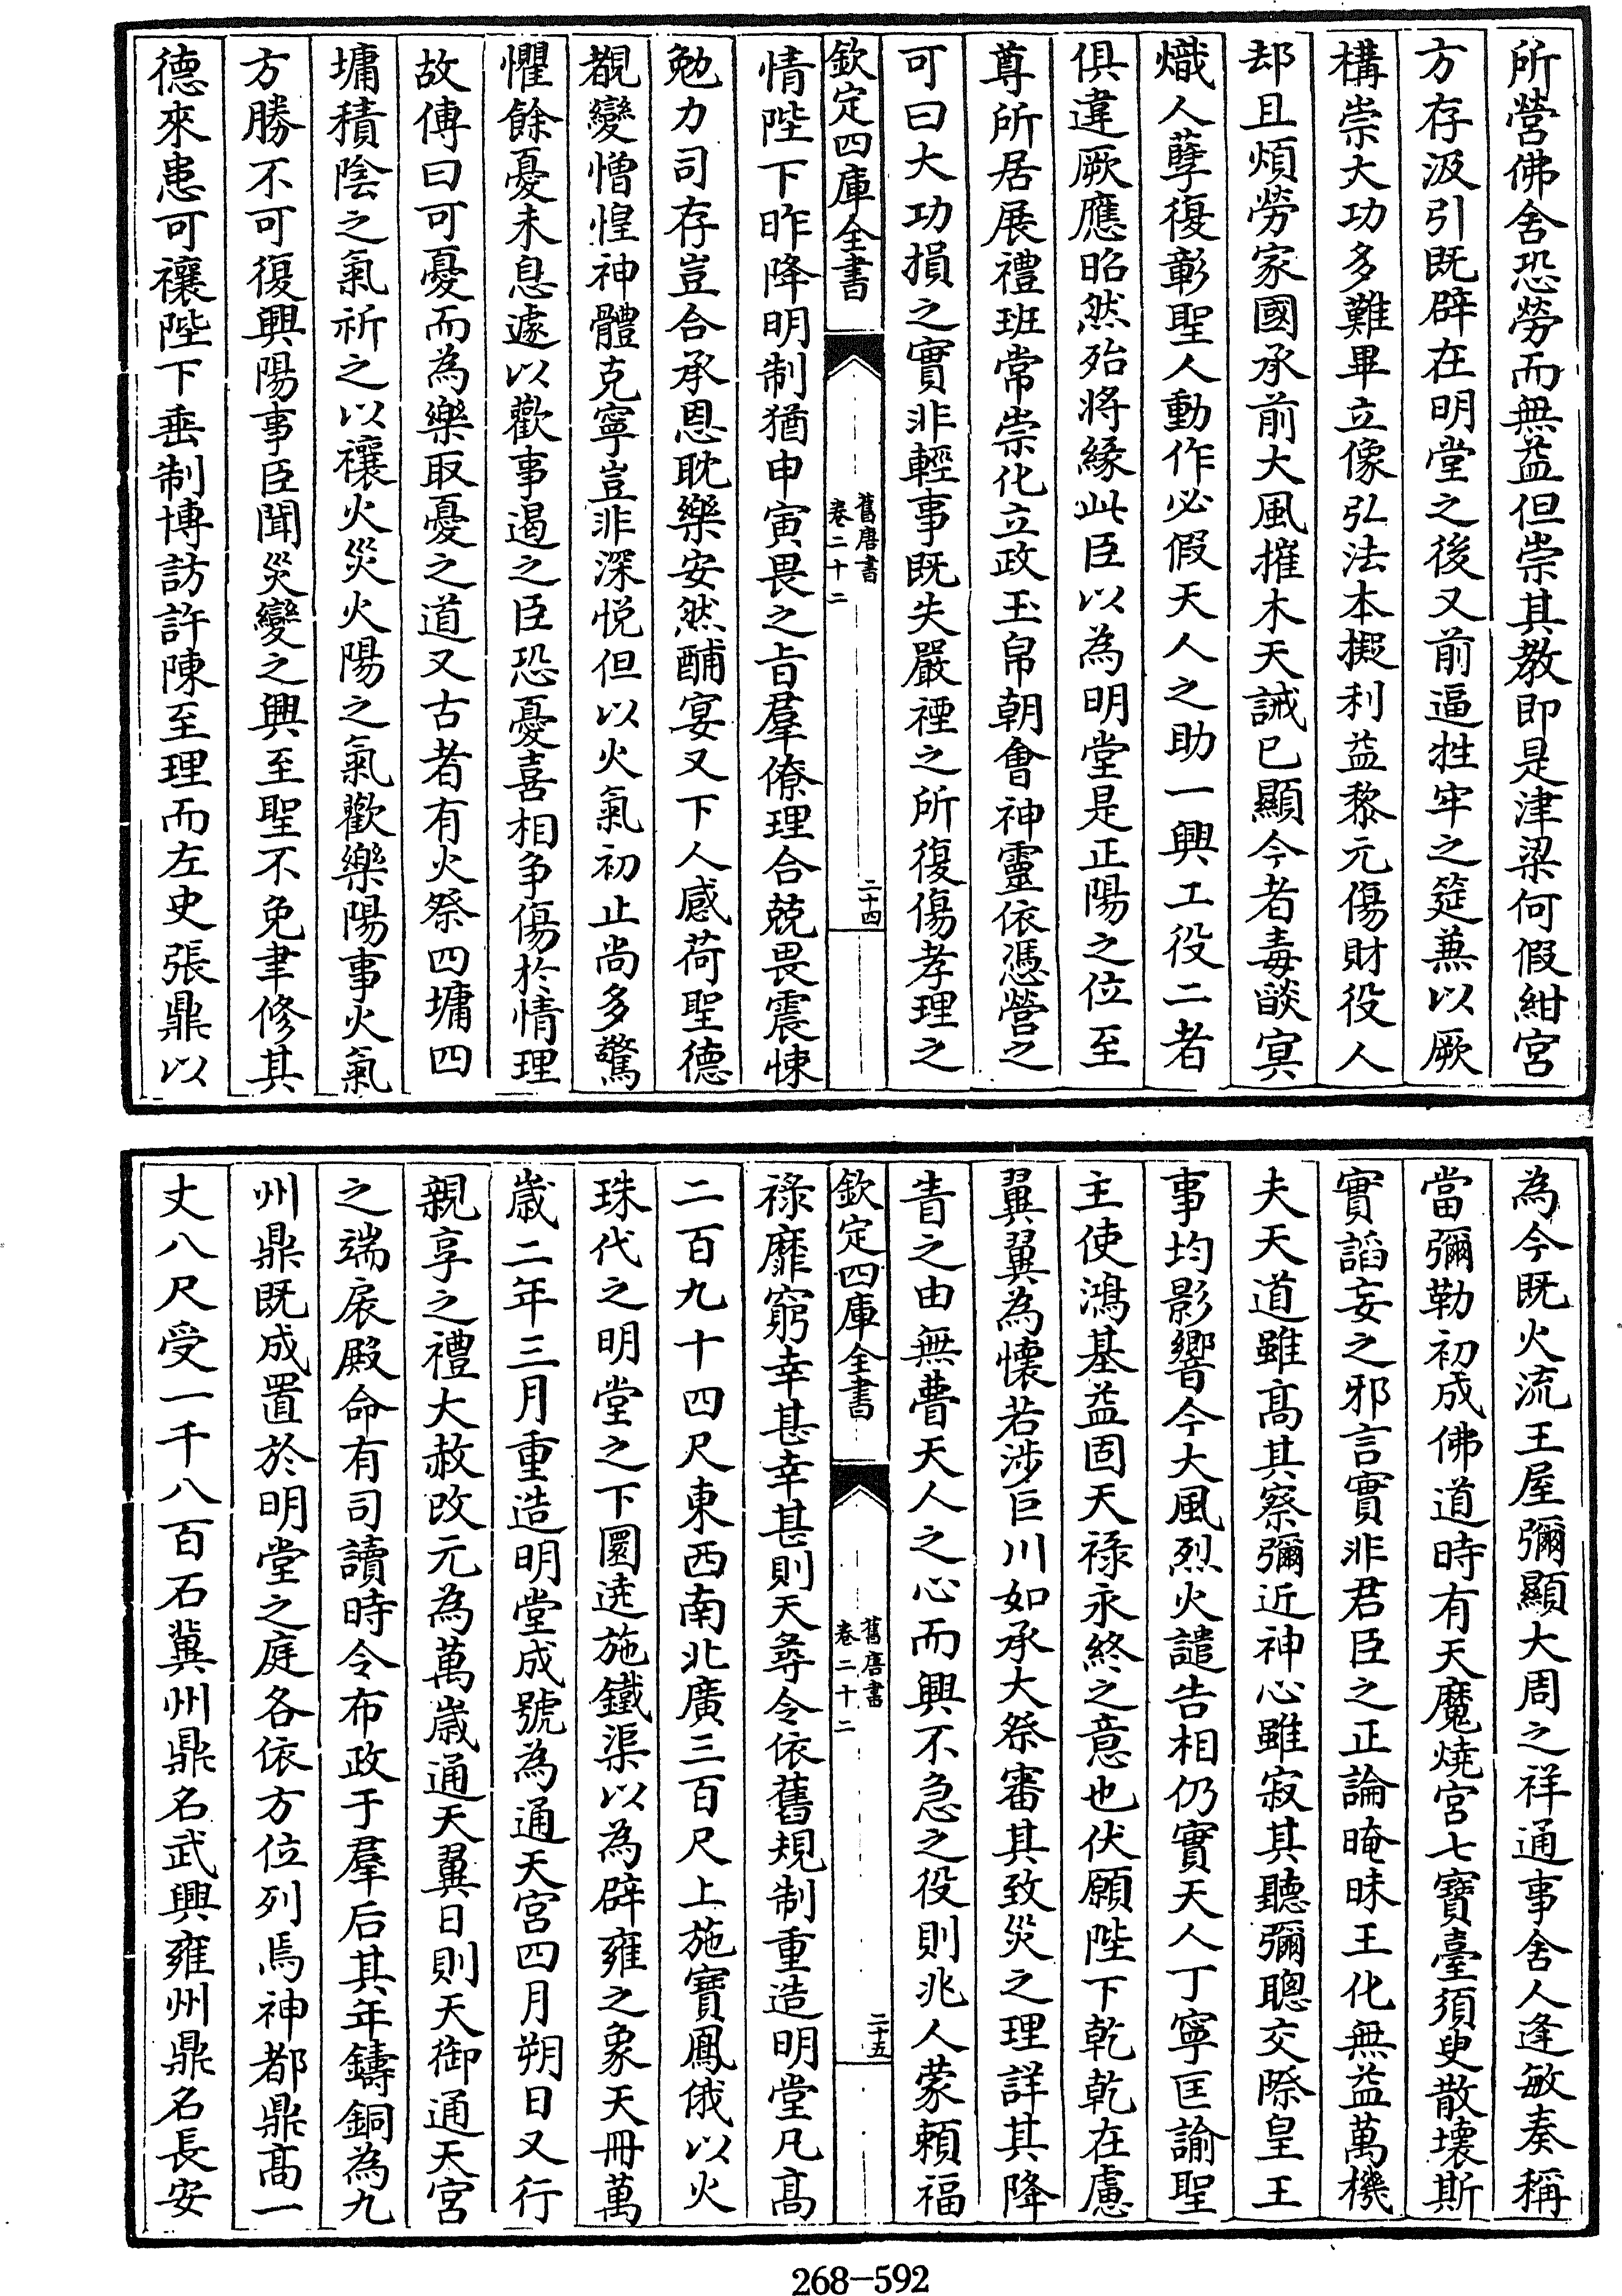 所營佛舍恐勞而無益但崇其教即是津梁何假紺宮
方存汲引既辟在明堂之後又前逼牲牢之筵兼以厥
構崇大功多難畢立像弘法本擬利益黎元傷財役人
却且煩勞家國承前大風摧木天誡已顯今者毒燄冥
熾人孽復彰聖人動作必假天人之助一興工役二者
俱違厥應昭然殆將緣此臣以為明堂是正陽之位至
尊所居展禮班常崇化立政玉帛朝會神靈依憑營之
可曰大功損之實非輕事既失嚴禋之所復傷孝理之
欽定四庫全書
舊唐書
卷二十二
二十四
情陛下昨降明制猶申寅畏之旨羣僚理合兢畏震悚
勉力司存豈合承恩耽樂安然酺宴又下人感荷聖德
覩變憎惶神體克寧豈非深悦但以火氣初止尚多驚
懼餘憂未息遽以歡事遏之臣恐憂喜相争傷於情理
故傳曰可憂而為樂取憂之道又古者有火祭四墉四
墉積陰之氣祈之以禳火災火陽之氣歡樂陽事火氣
方勝不可復興陽事臣聞災變之興至聖不免聿修其
德來患可禳陛下垂制博訪許陳至理而左史張鼎以
為今既火流王屋彌顯大周之祥通事舍人逢敏奏稱
當彌勒初成佛道時有天魔燒宮七寶臺須臾散壞斯
實謟妄之邪言實非君臣之正論晻昧王化無益萬機
夫天道雖高其察彌近神心雖寂其聽彌聰交際皇王
事均影響今大風烈火譴告相仍實天人丁寧匡諭聖
主使鴻基益固天祿永終之意也伏願陛下乾乾在慮
翼翼為懷若涉巨川如承大祭審其致災之理詳其降
眚之由無瞢天人之心而興不急之役則兆人蒙頼福
欽定四庫全書
舊唐書
卷二十二
二十五
祿靡窮幸甚幸甚則天尋令依舊規制重造明堂凡高
二百九十四尺東西南北廣三百尺上施寶鳳俄以火
珠代之明堂之下圜遶施鐵渠以為辟雍之象天冊萬
歲二年三月重造明堂成號為通天宮四月朔日又行
親享之禮大赦改元為萬歲通天翼日則天御通天宮
之端扆殿命有司讀時令布政于羣后其年鑄銅為九
州鼎既成置於明堂之庭各依方位列焉神都鼎高一
丈八尺受一千八百石冀州鼎名武興雍州鼎名長安
268-592